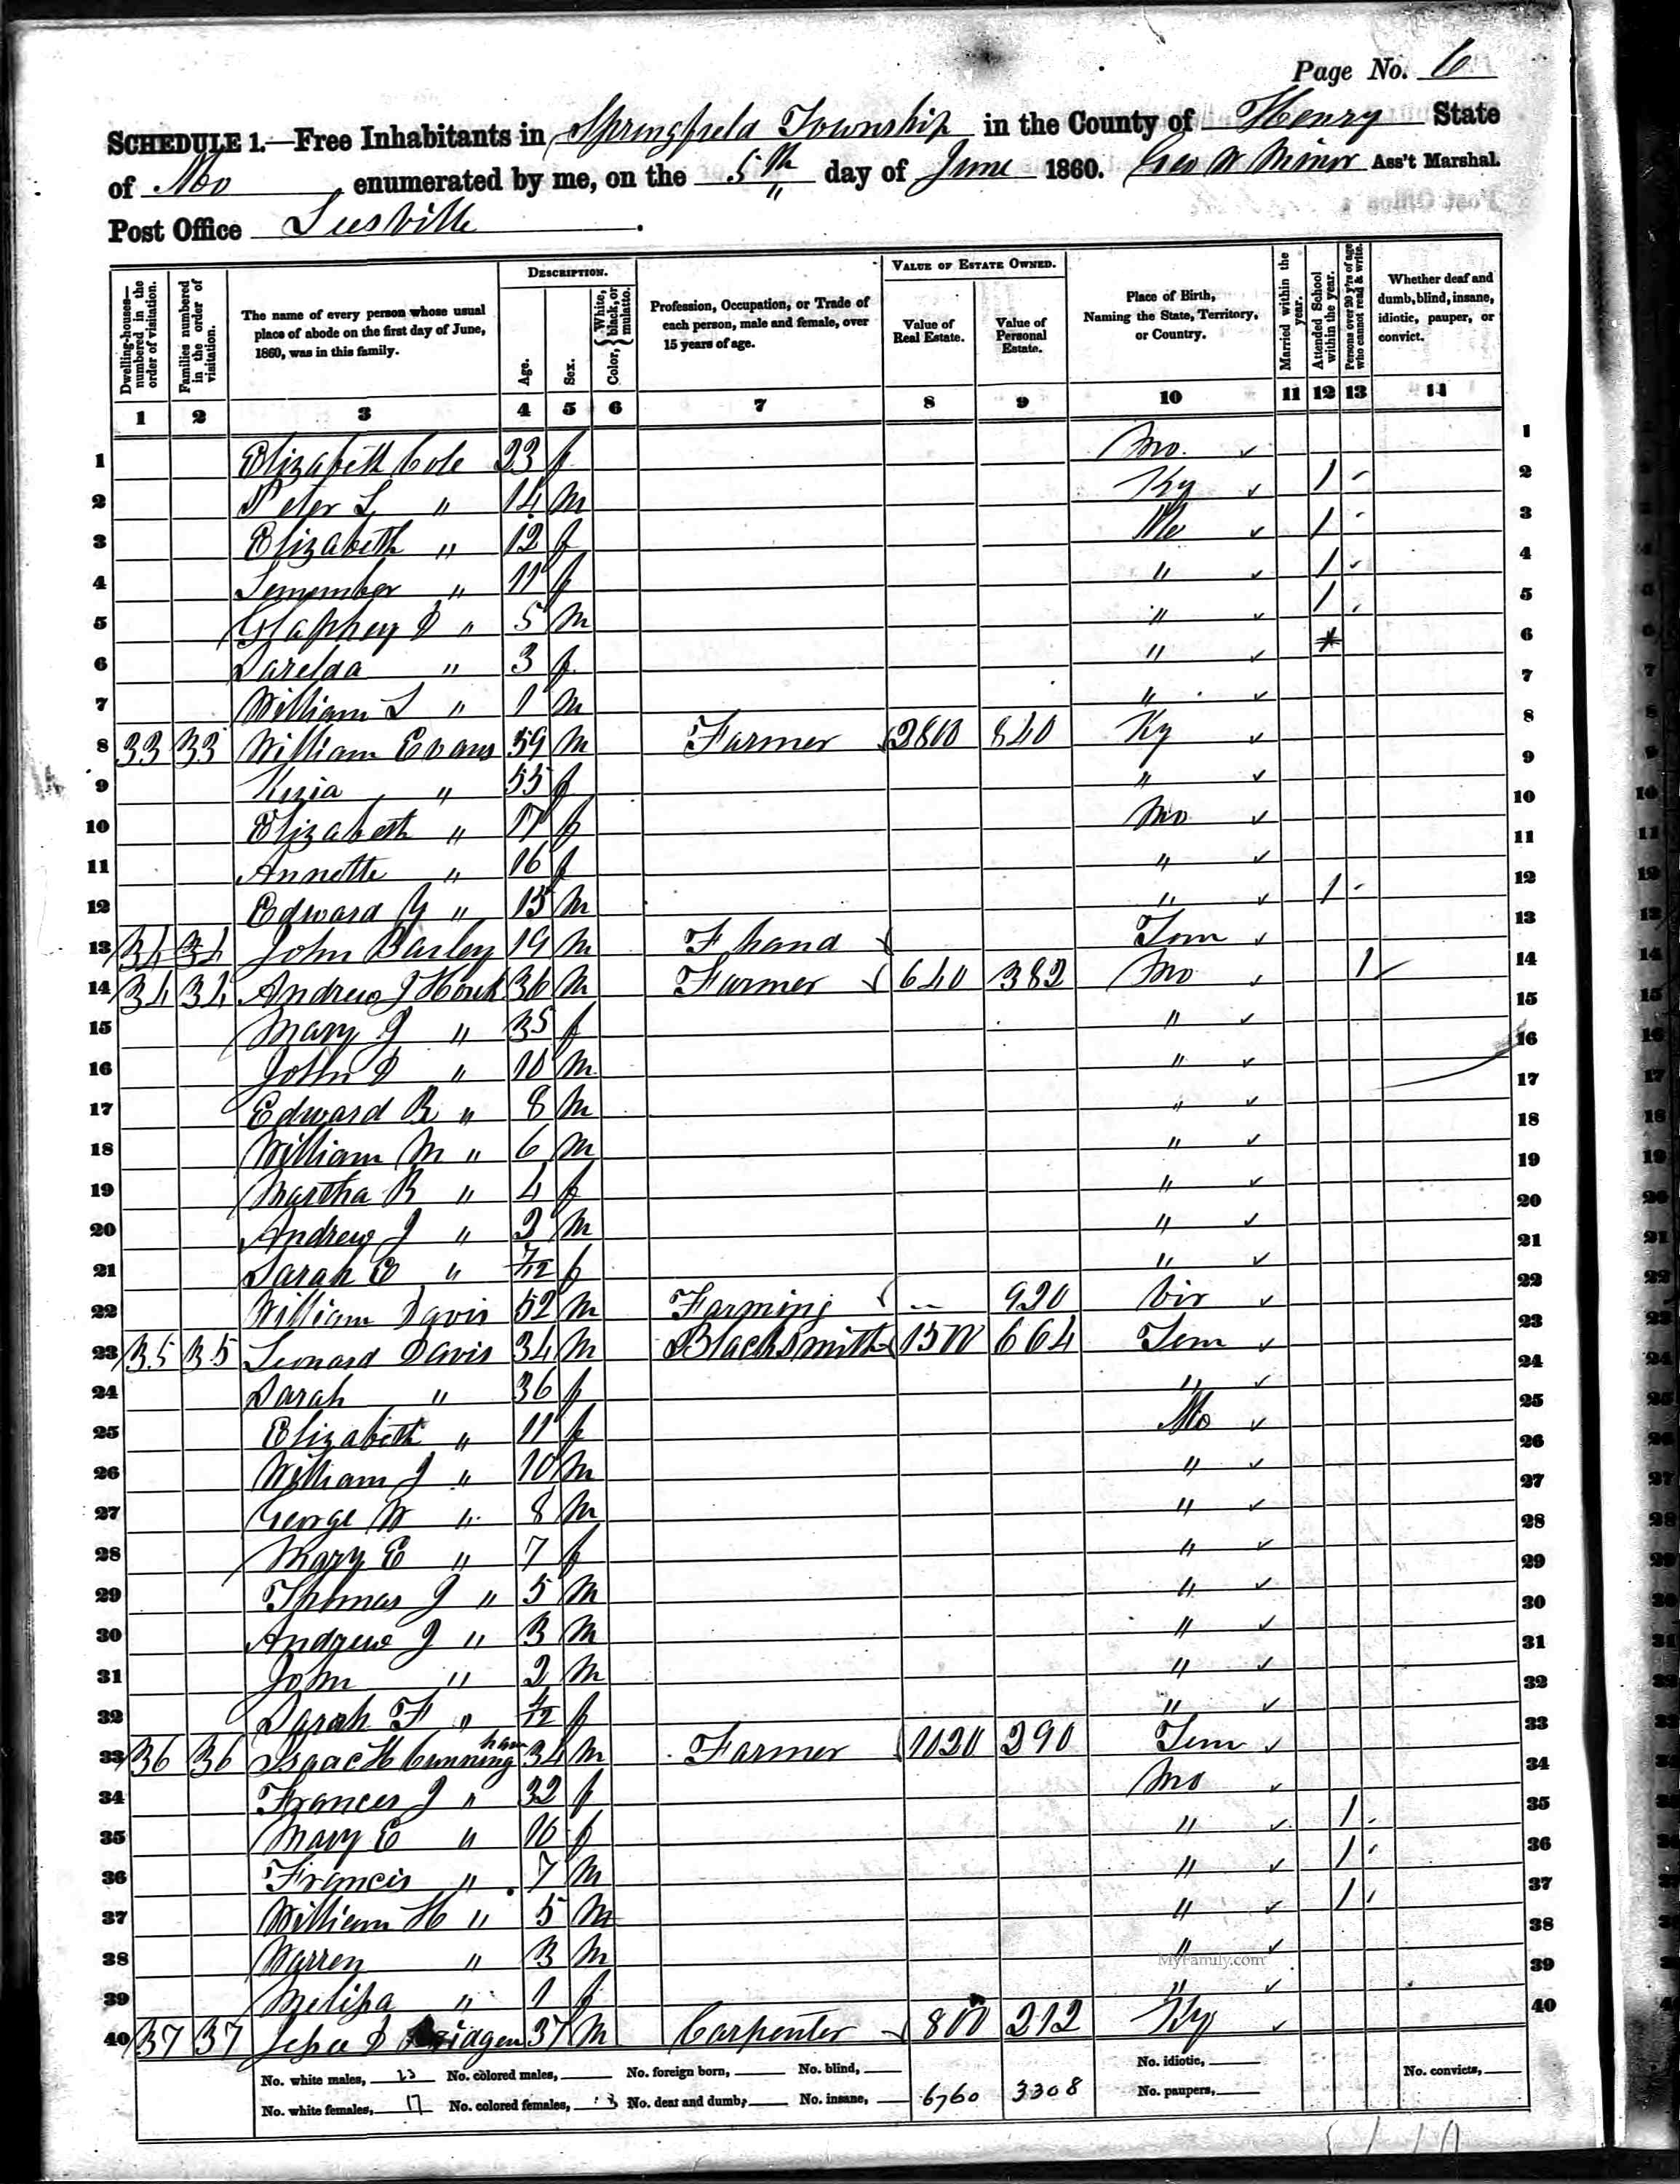 Page No. 6
SCHEDULE 1.—Free Inhabitants in Springfield Township in the County of Henry State
of Mo enumerated by me, on the 5th day of June 1860. Geo W Minor Ass't Marshal.
Post Office Leesville.
Dwelling-houses—numbered in the order of visitation.
Families numbered in the order of visitation.
The name of every person whose usual place of abode on the first day of June, 1860, was in this family.
DESCRIPTION.
Age.
Sex.
Color, { White, black, or mulatto.
Profession, Occupation, or Trade of each person, male and female, over 15 years of age.
VALUE OF ESTATE OWNED.
Value of Real Estate.
Value of Personal Estate.
Place of Birth, Naming the State, Territory, or Country.
Married within the year.
Attended School within the year.
Persons over 20 y'rs of age who cannot read & write.
Whether deaf and dumb, blind, insane, idiotic, pauper, or convict.
1 2 3 4 5 6 7 8 9 10 11 12 13 14
1 Elizabeth Cole 23 f Mo. 1
2 Peter L " 14 m Ky 1 2
3 Elizabeth " 12 f Mo 1 3
4 " 11 f " 1 4
5 " 5 m " 1 5
6 Sarelda " 3 f " 6
7 William L " 1 m " 7
8 33 33 William Evans 59 m Farmer 2800 840 Ky 8
9 Kizia " 55 f " 9
10 Elizabeth " 17 f Mo 10
11 Annette " 16 f " 11
12 Edward Y " 15 m " 1 12
13 34 34 John Barley 19 m F hand Tenn 13
14 34 34 Andrew J Houk 36 m Farmer 640 382 Mo 1 14
15 Mary J " 35 f " 15
16 John D " 10 m " 16
17 Edward R " 8 m " 17
18 William M " 6 m " 18
19 Martha R " 4 f " 19
20 Andrew J " 2 m " 20
21 Sarah E " 7/12 f " 21
22 William Davis 52 m Farming -- 920 Vir 22
23 35 35 Leonard Davis 34 m Blacksmith 1500 664 Tenn 23
24 Sarah " 36 f " 24
25 Elizabeth " 11 f Mo 25
26 William J " 10 m " 26
27 George W " 8 m " 27
28 Mary E " 7 f " 28
29 Thomas J " 5 m " 29
30 Andrew J " 3 m " 30
31 John " 2 m " 31
32 Sarah F " /12 f " 32
33 36 36 Isaac H Cunningham 34 m Farmer 1020 290 Tenn 33
34 Frances J " 32 f Mo 34
35 Mary E " 10 f " 1 35
36 Francis " 7 m " 1 36
37 William H " 5 m " 1 37
38 Warren " 3 m " 38
39 Melissa " 1 f " 39
40 37 37 Jesse D 37 m Carpenter 800 212 Ky 40
MyFamily.com
No. white males, 23 No. colored males, No. foreign born, No. blind, No. idiotic, No. convicts,
No. white females, 17 No. colored females, No. deaf and dumb, No. insane, 6760 3308 No. paupers,